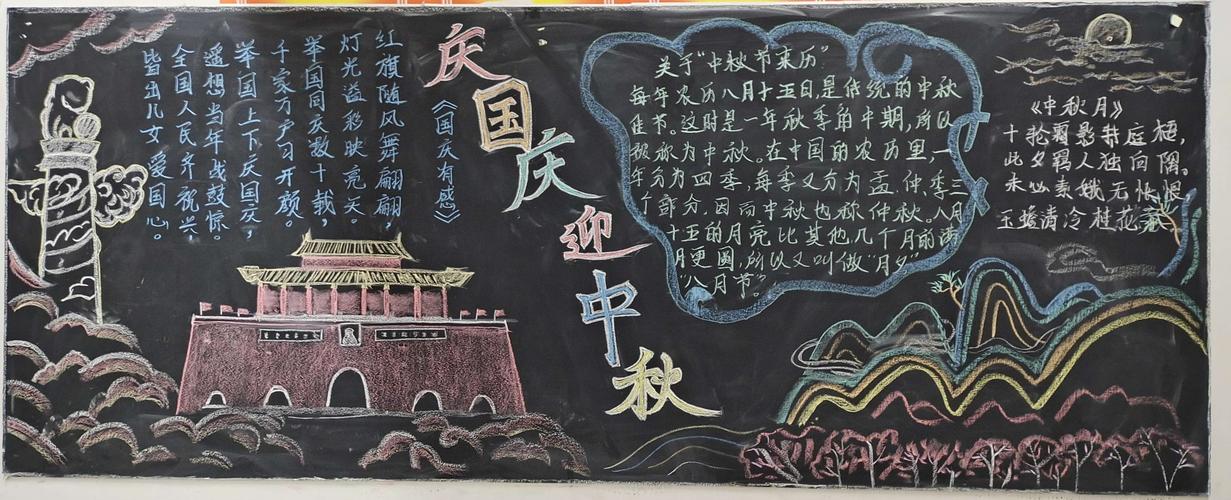 庆国庆迎中秋
《国庆有感》
红旗随风舞翩翩，
灯光溢彩映亮天。
举国同庆数十载，
千家万户习开颜。
举国上下庆国庆，
遥想当年战鼓惊。
全国人民齐祝兴，
皆出儿女爱国心。
关于“中秋节来历”
每年农历八月十五日，是传统的中秋
佳节。这时是一年秋季的中期，所以
被称为中秋。在中国的农历里，一
年分为四季，每季又分为孟、仲、季三
个部分，因而中秋也称仲秋。八月
十五的月亮比其他几个月的满
月更圆，所以又叫做“月夕”
“八月节”。
《中秋月》
十轮霜影转庭梧，
此夕羁人独向隅。
未必素娥无怅恨，
玉蟾清冷桂花